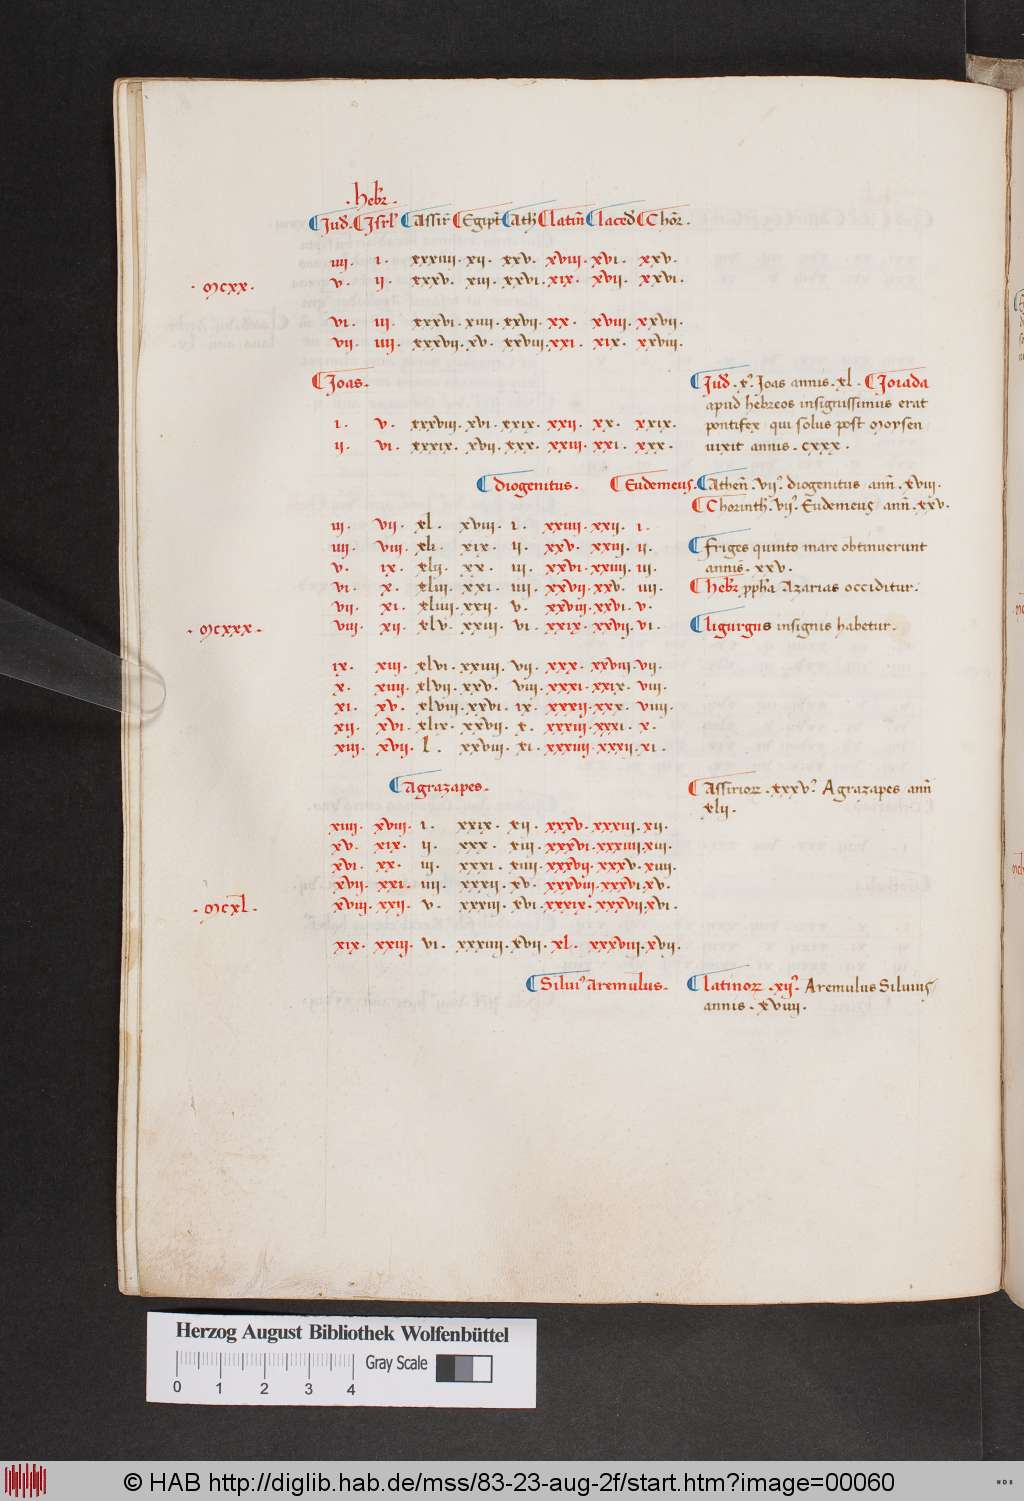 · hebr ·
Jud · Jsrl' Assir Egipt Ath latin laced Chor ·
iiij · i · xxxiiii · xii · xxv · xviii · xvi · xxv ·
· mcxx · v · ii · xxxv · xiii · xxvi · xix · xvii · xxvi ·
vi · iii · xxxvi · xiiii · xxvii · xx · xviii · xxvii ·
vii · iiii · xxxvii · xv · xxviii · xxi · xix · xxviii ·
Joas · Jud · x° · Joas annis · xl · Joiada
apud hebreos insignissimus erat
i · v · xxxviii · xvi · xxix · xxii · xx · xxix · pontifex qui solus post moysen
ii · vi · xxxix · xvii · xxx · xxiii · xxi · xxx · uixit annis · cxxx ·
diogenitus · Eudemeus · Athen · vii° · diogenitus ann · xviii ·
Chorinth · vii° · Eudemeus ann · xxv ·
iii · vii · xl · xviii · i · xxiiii · xxii · i ·
iiii · viii · xli · xix · ii · xxv · xxiii · ii · friges quinto mare obtinuerunt
v · ix · xlii · xx · iii · xxvi · xxiiii · iii · annis · xxv ·
vi · x · xliii · xxi · iiii · xxvii · xxv · iiii · hebr ppha Azarias occiditur ·
vii · xi · xliiii · xxii · v · xxviii · xxvi · v ·
· mcxxx · viii · xii · xlv · xxiii · vi · xxix · xxvii · vi · ligurgus insignis habetur ·
ix · xiii · xlvi · xxiiii · vii · xxx · xxviii · vii ·
x · xiiii · xlvii · xxv · viii · xxxi · xxix · viii ·
xi · xv · xlviii · xxvi · ix · xxxii · xxx · viiii ·
xii · xvi · xlix · xxvii · x · xxxiii · xxxi · x ·
xiii · xvii · l · xxviii · xi · xxxiiii · xxxii · xi ·
Agrazapes · Assirior · xxxv° Agrazapes ann
xlii ·
xiiii · xviii · i · xxix · xii · xxxv · xxxiii · xii ·
xv · xix · ii · xxx · xiii · xxxvi · xxxiiii · xiii ·
xvi · xx · iii · xxxi · xiiii · xxxvii · xxxv · xiiii ·
xvii · xxi · iiii · xxxii · xv · xxxviii · xxxvi · xv ·
· mcxl · xviii · xxii · v · xxxiii · xvi · xxxix · xxxvii · xvi ·
xix · xxiii · vi · xxxiiii · xvii · xl · xxxviii · xvii ·
Silui' Aremulus · latinor · xii° · Aremulus Siluius
annis · xviiii ·
Herzog August Bibliothek Wolfenbüttel
Gray Scale
0 1 2 3 4
© HAB http://diglib.hab.de/mss/83-23-aug-2f/start.htm?image=00060